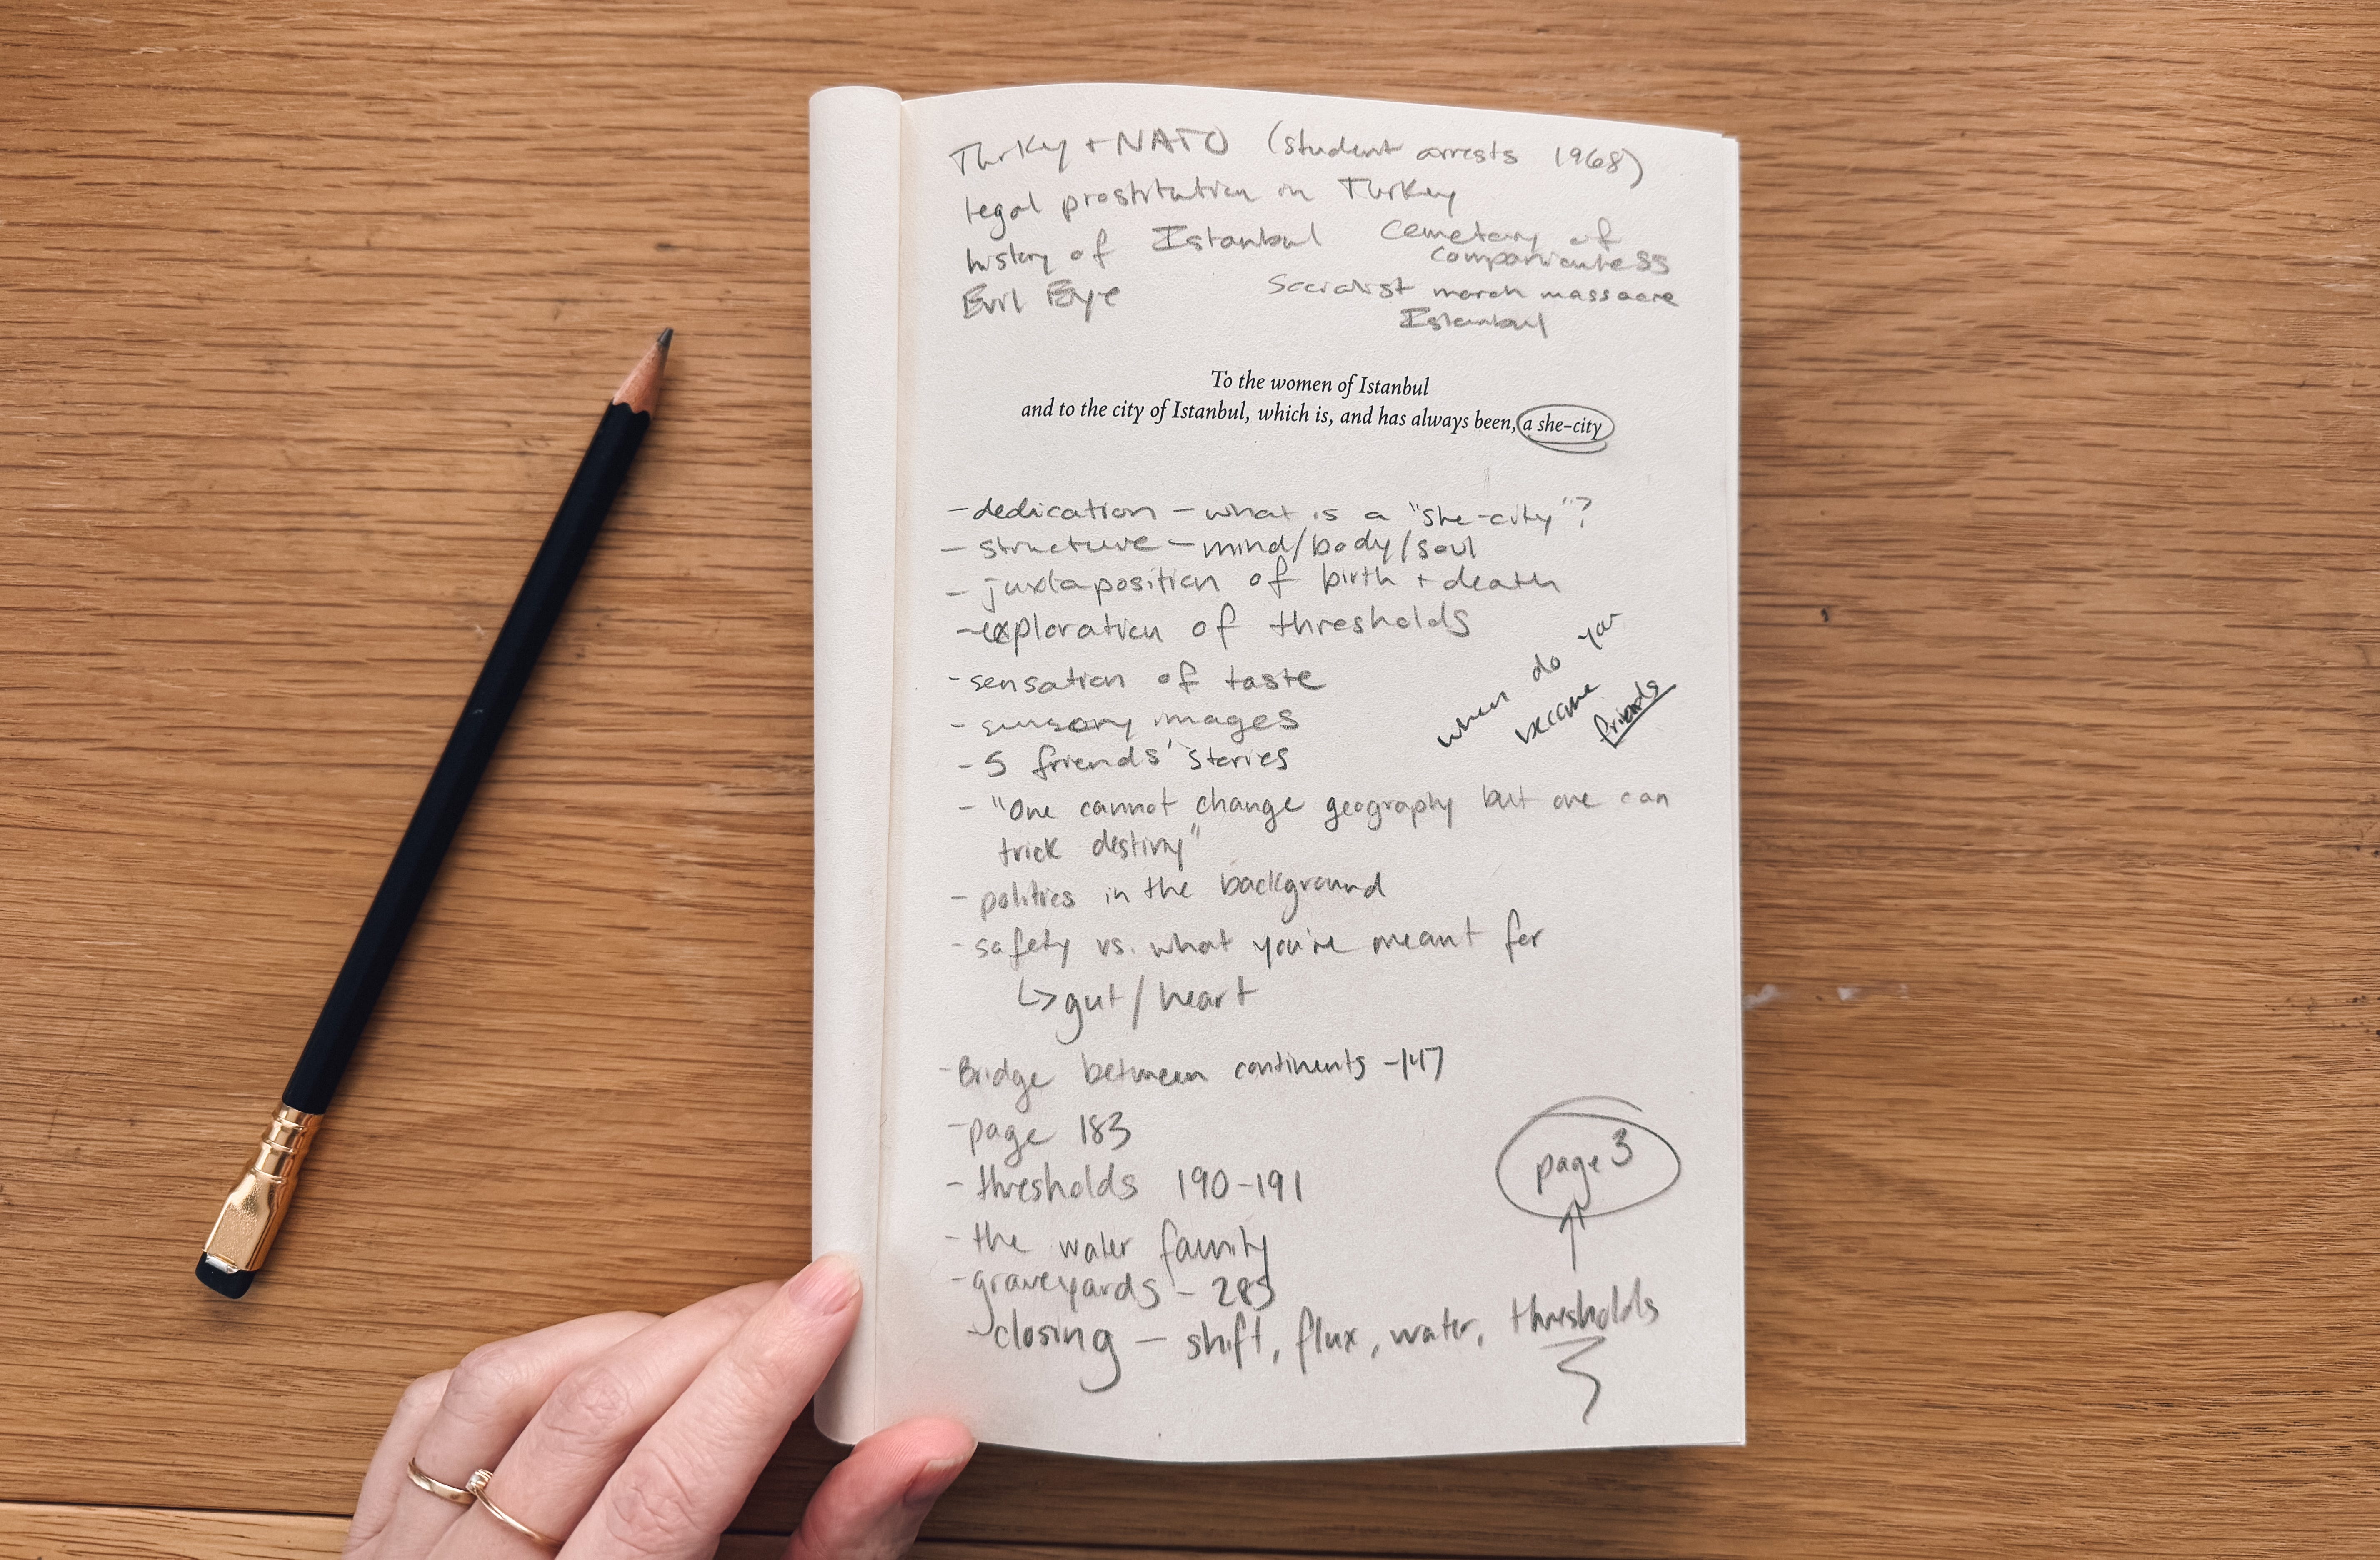 Turkey + NATO (student arrests 1968)
legal prostitution in Turkey
history of Istanbul
Cemetery of
Evil Eye
Socialist march massacre
Istanbul
To the women of Istanbul
and to the city of Istanbul, which is, and has always been, a she-city
- dedication - what is a "she-city"?
- structure - mind/body/soul
- juxtaposition of birth + death
- exploration of thresholds
- sensation of taste
- sensory images
- 5 friends' stories
when do you
become
friends
- "One cannot change geography but one can
trick destiny"
- politics in the background
- safety vs. what you're meant for
↳ gut/heart
- Bridge between continents - 147
- page 183
- thresholds 190-191
page 3
- the water family
- graveyards - 285
- closing - shift, flux, water, thresholds